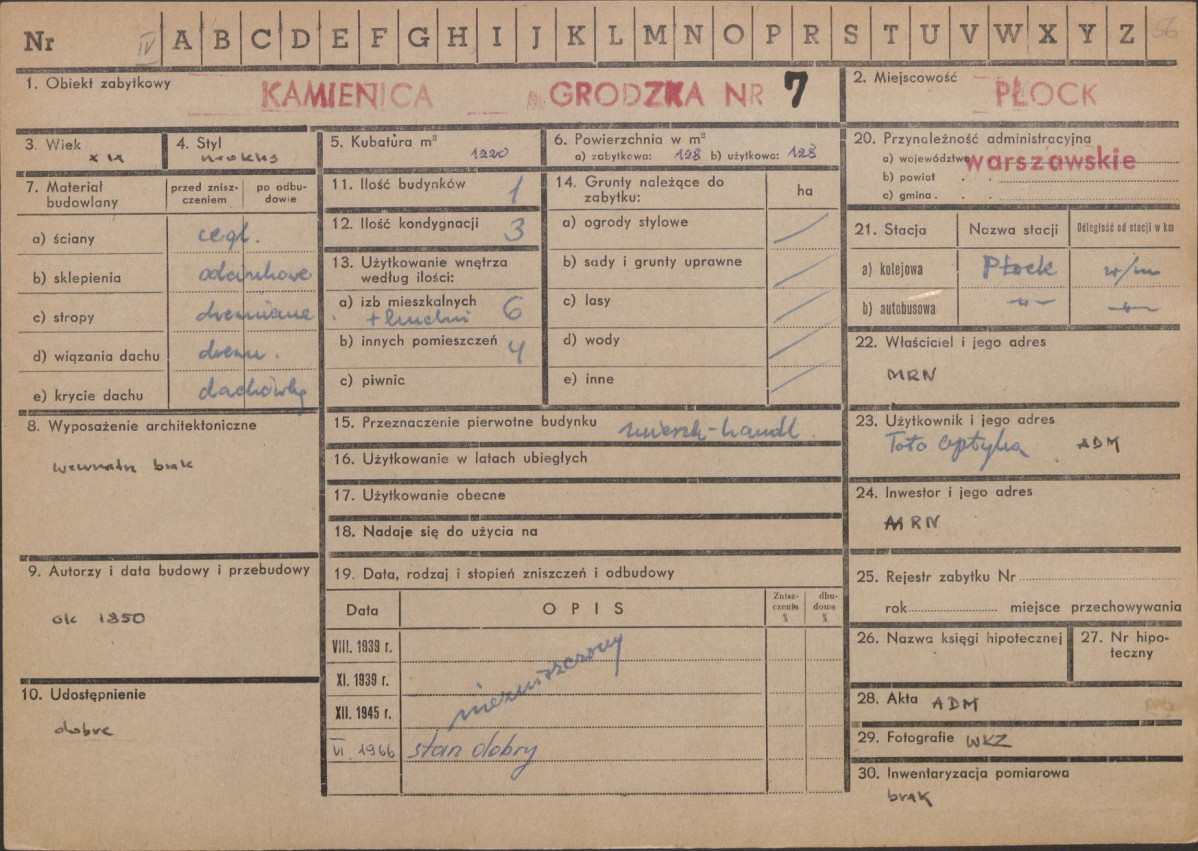 Nr IV A B C D E F G H I J K L M N O P R S T U V W X Y Z 56
1. Obiekt zabytkowy KAMIENICA GRODZKA NR 7
2. Miejscowość PŁOCK
3. Wiek XIX
4. Styl neokls
5. Kubatura m³ 1220
6. Powierzchnia w m²
a) zabytkowa: 128 b) użytkowa: 128
20. Przynależność administracyjna
a) województwo warszawskie
b) powiat
c) gmina
7. Materiał budowlany
przed zniszczeniem
po odbudowie
a) ściany cegl.
b) sklepienia odcinkowe
c) stropy drewniane
d) wiązania dachu drewn.
e) krycie dachu dachówka
11. Ilość budynków 1
12. Ilość kondygnacji 3
13. Użytkowanie wnętrza
według ilości:
a) izb mieszkalnych 6
+ kuchni
b) innych pomieszczeń 4
c) piwnic
14. Grunty należące do
zabytku:
ha
a) ogrody stylowe
b) sady i grunty uprawne
c) lasy
d) wody
e) inne
21. Stacja
Nazwa stacji
Odległość od stacji w km
a) kolejowa Płock w/m
b) autobusowa -"- -"-
22. Właściciel i jego adres
MRN
8. Wyposażenie architektoniczne
wewnątrz brak
15. Przeznaczenie pierwotne budynku mieszk-handl.
16. Użytkowanie w latach ubiegłych
17. Użytkowanie obecne
18. Nadaje się do użycia na
23. Użytkownik i jego adres
Foto Optyka ADM
24. Inwestor i jego adres
MRN
9. Autorzy i data budowy i przebudowy
ok 1850
10. Udostępnienie
dobre
19. Data, rodzaj i stopień zniszczeń i odbudowy
Data
OPIS
Zniszczenia %
dbudowa %
VIII. 1939 r.
XI. 1939 r.
XII. 1945 r.
niezniszczony
VI 1966 stan dobry
25. Rejestr zabytku Nr
rok miejsce przechowywania
26. Nazwa księgi hipotecznej
27. Nr hipo-
teczny
28. Akta ADM
29. Fotografie WKZ
30. Inwentaryzacja pomiarowa
brak